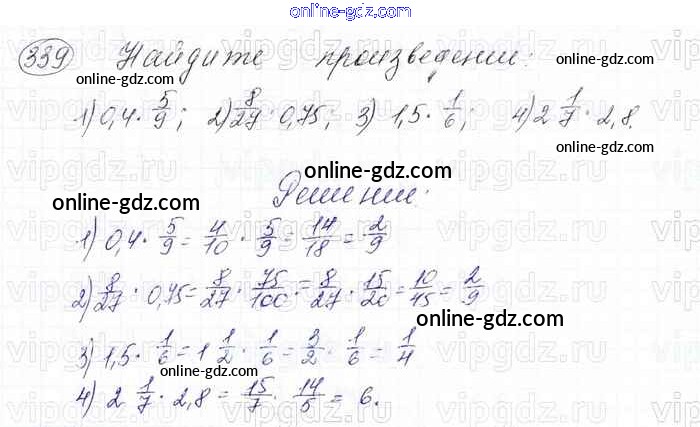 online-gdz.com
339 Найдите произведение:
online-gdz.com online-gdz.com
1) 0,4 · 5/9; 2) 8/27 · 0,75; 3) 1,5 · 1/6; 4) 2 1/7 · 2,8.
online-gdz.com
Решение.
online-gdz.com online-gdz.com
1) 0,4 · 5/9 = 4/10 · 5/9 = 14/18 = 2/9
2) 8/27 · 0,75 = 8/27 · 75/100 = 8/27 · 15/20 = 10/45 = 2/9
online-gdz.com
3) 1,5 · 1/6 = 1 1/2 · 1/6 = 3/2 · 1/6 = 1/4
online-gdz.com
4) 2 1/7 · 2,8 = 15/7 · 14/5 = 6.
online-gdz.com